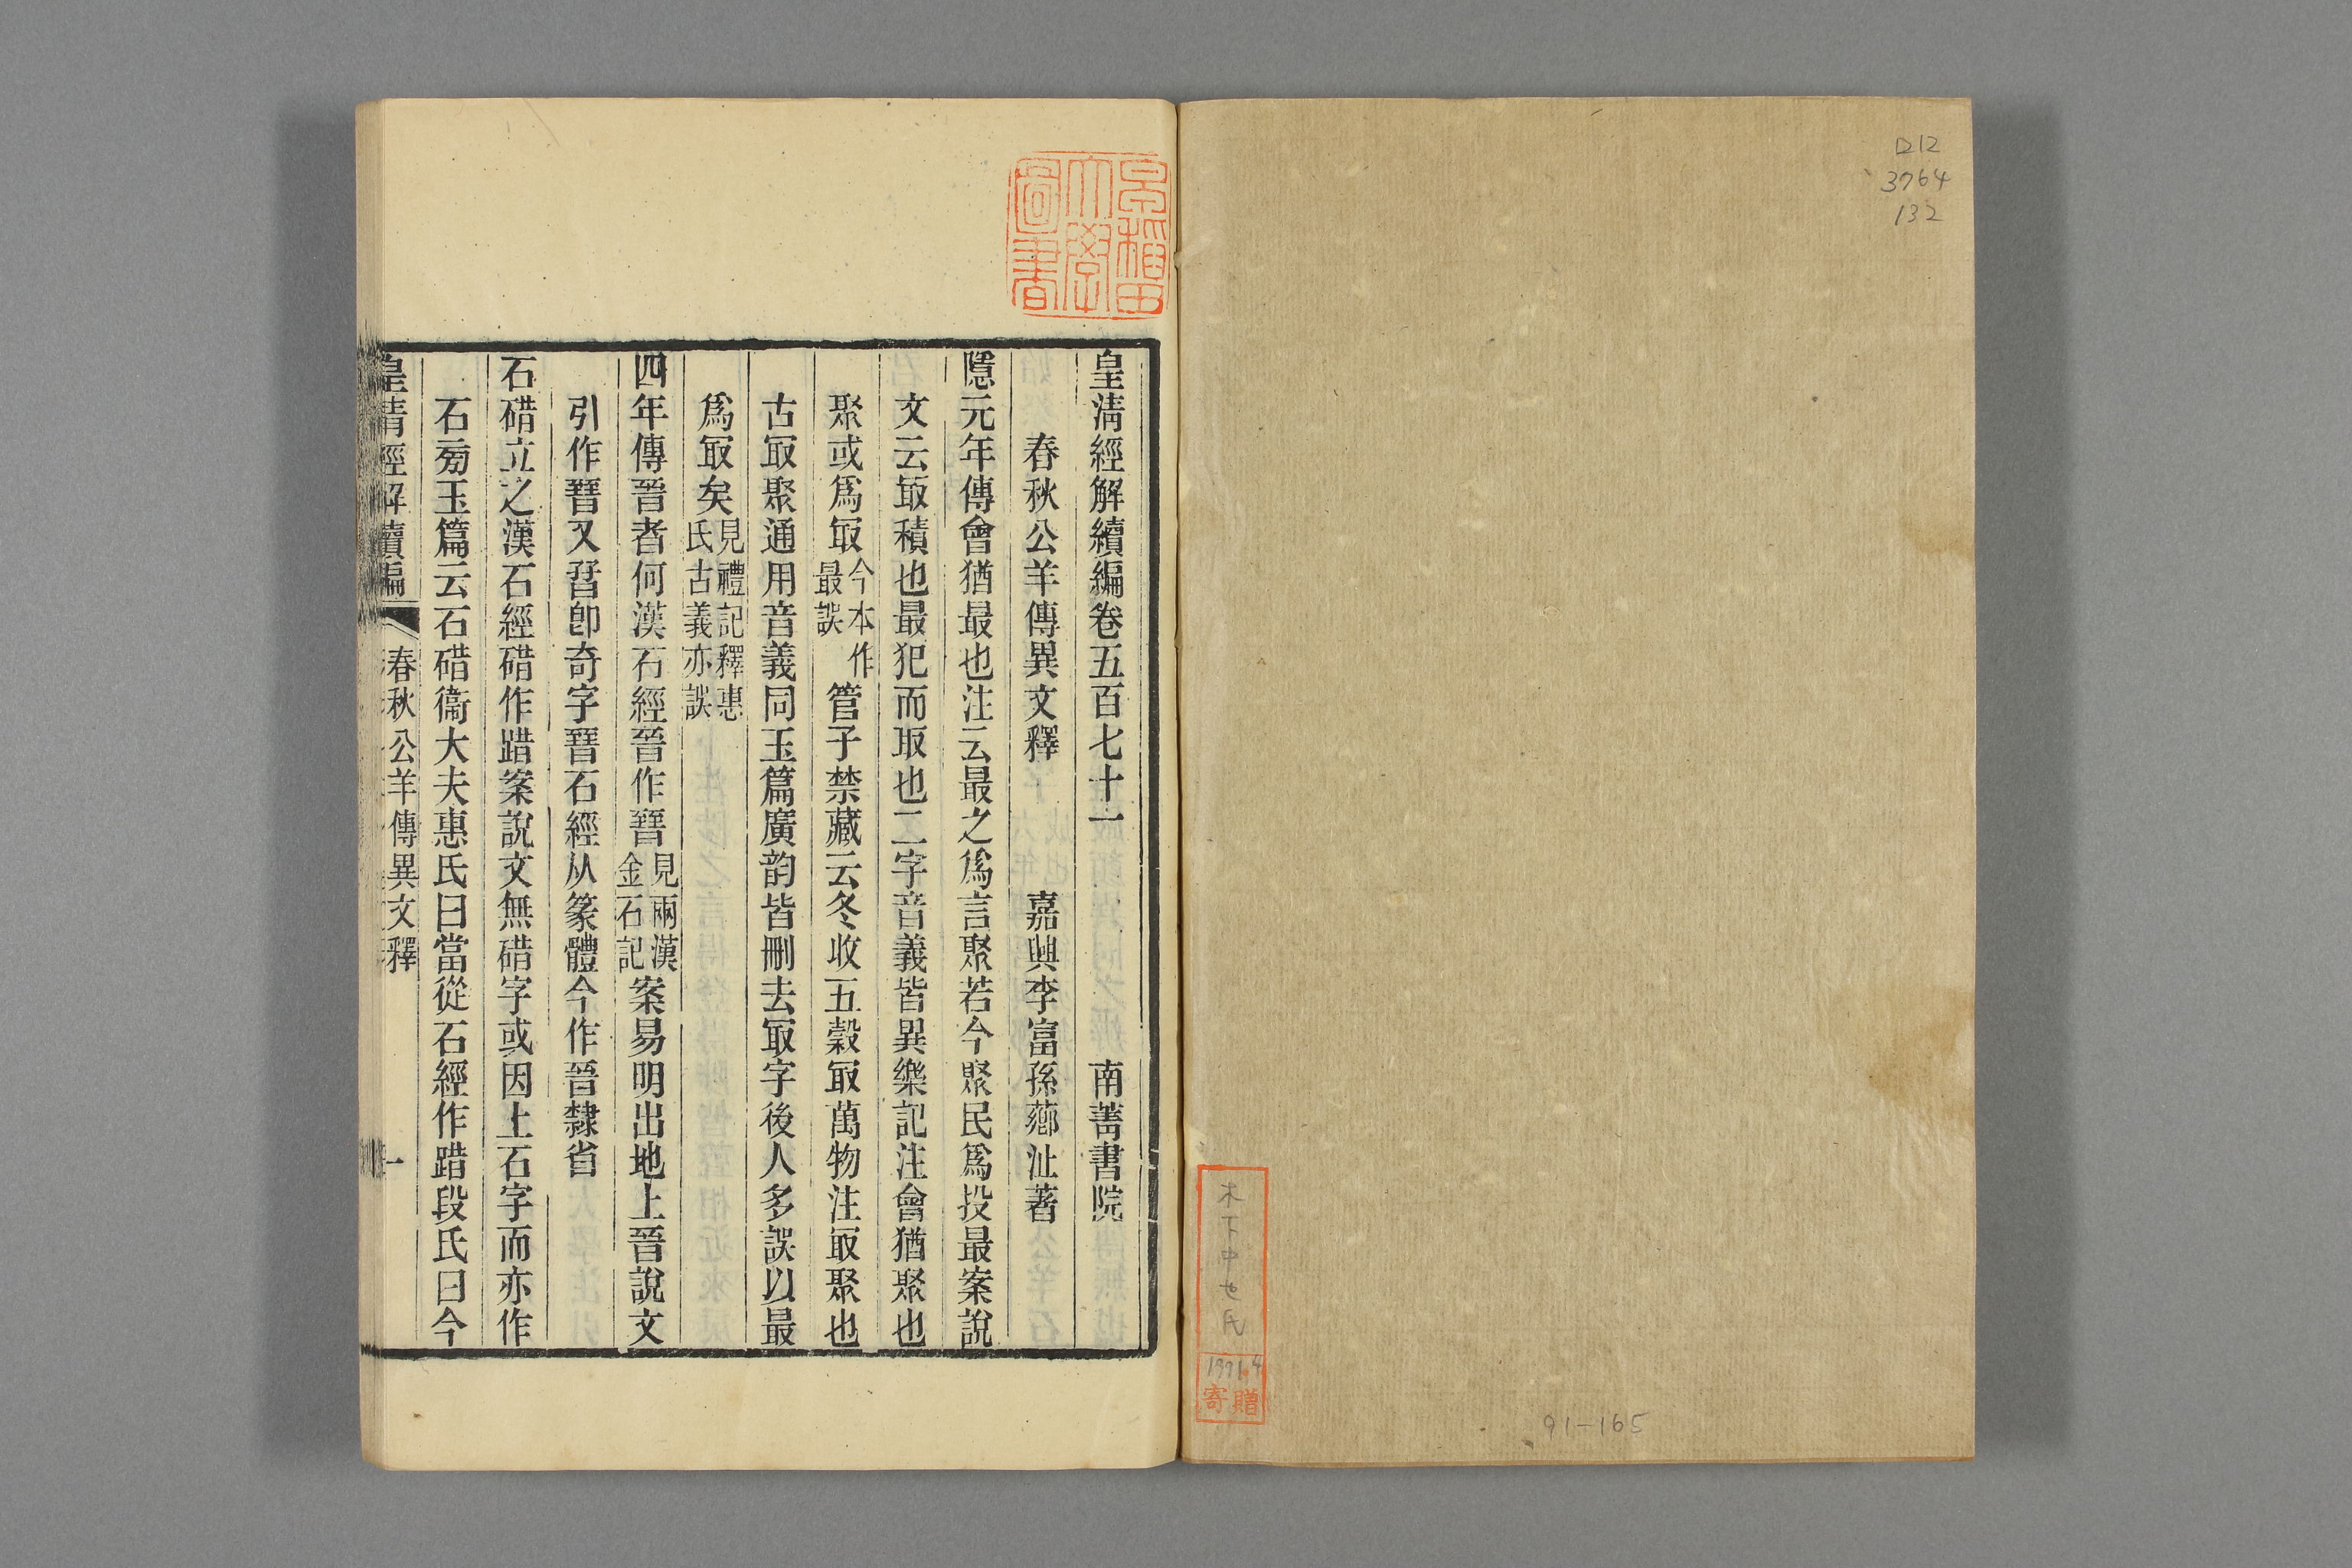 ロ12
3764
132
木下中世氏
1991.4
寄贈
91-165
早稲田大學圖書
皇淸經解續編卷五百七十一　南菁書院
春秋公羊傳異文釋　嘉興李富孫薌沚著
隱元年傳會猶最也注云最之爲言聚若今聚民爲投最案說
文云冣積也最犯而取也二字音義皆異樂記注會猶聚也
聚或爲冣今本作最誤管子禁藏云冬收五穀冣萬物注冣聚也
古冣聚通用音義同玉篇廣韵皆刪去冣字後人多誤以最
爲冣矣見禮記釋惠氏古義亦誤
四年傳晉者何漢石經晉作晉見兩漢金石記案易明出地上晉說文
引作晉又晉卽奇字晉石經从篆體今作晉隸省
石碏立之漢石經碏作踖案說文無碏字或因上石字而亦作
石㫄玉篇云石碏衞大夫惠氏曰當從石經作踖段氏曰今
皇淸經解續編　春秋公羊傳異文釋　一